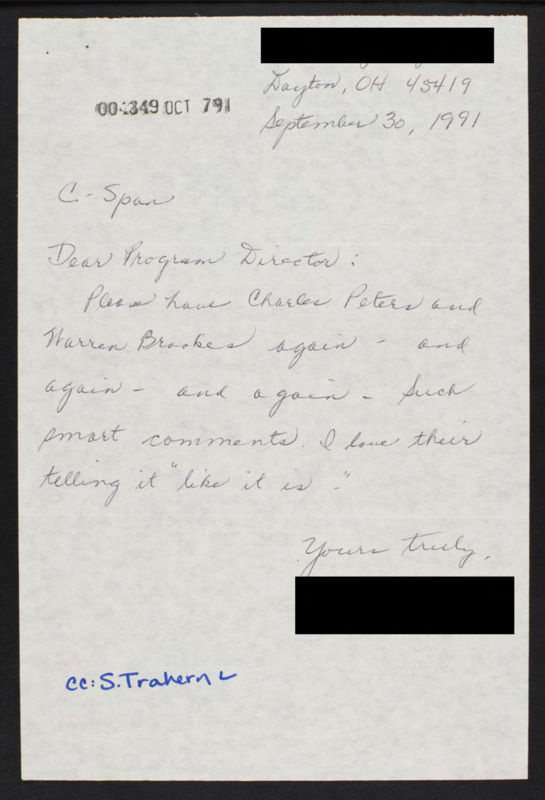 Dayton, OH 45419
004349 OCT 791
September 30, 1991
C-Span
Dear Program Director:
Please have Charles Peters and
Warren Brookes again - and
again - and again - Such
smart comments. I love their
telling it "like it is."
Yours truly,
cc: S. Trahern